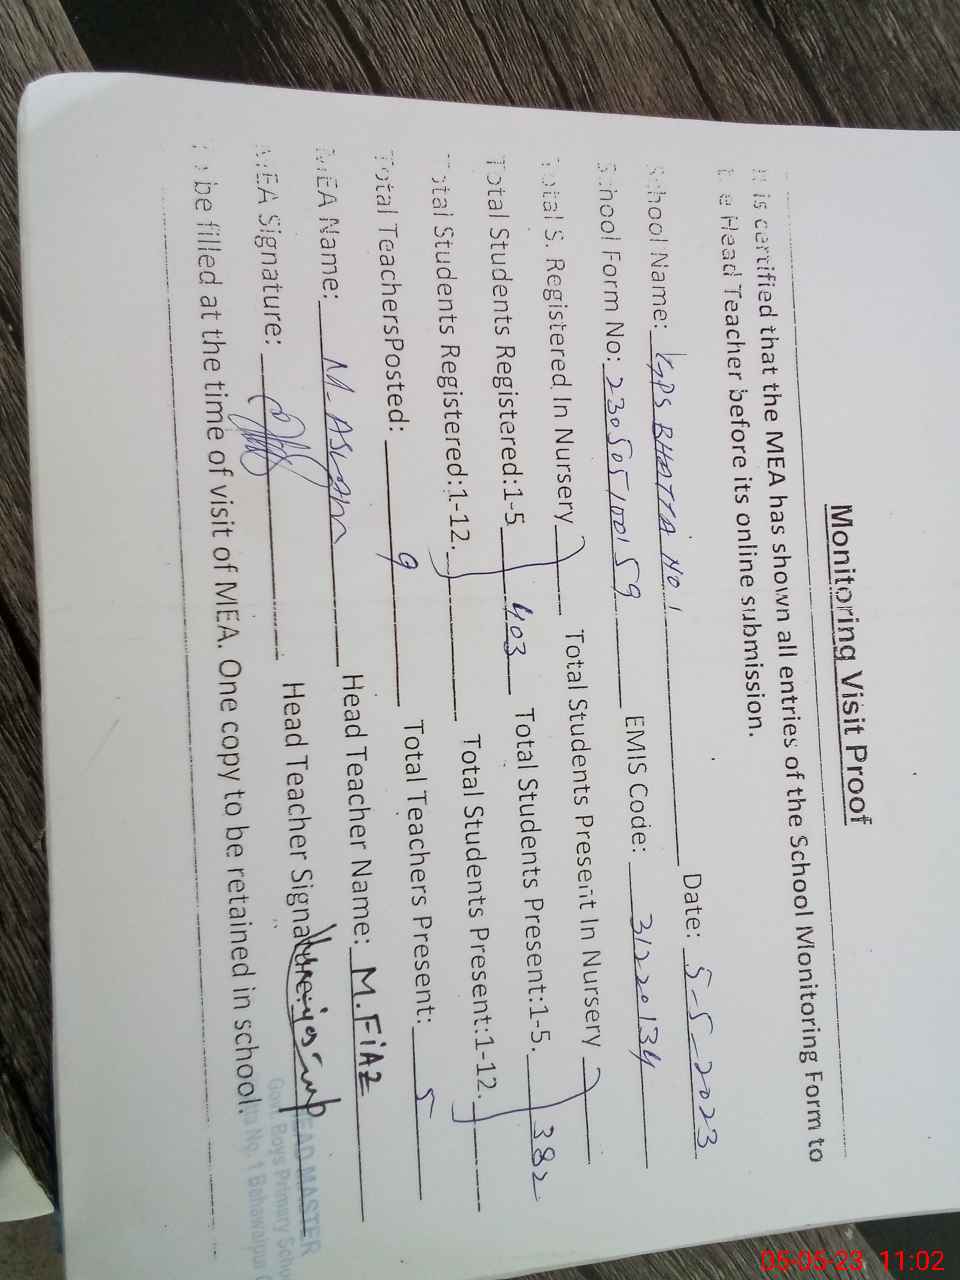 Monitoring Visit Proof
It is certified that the MEA has shown all entries of the School Monitoring Form to
the Head Teacher before its online submission.
School Name: GPS BHATTA No 1 Date: 5-5-2023
School Form No: 230505100159 EMIS Code: 31220134
Total S. Registered In Nursery Total Students Present In Nursery
Total Students Registered:1-5 403 Total Students Present:1-5. 382
Total Students Registered:1-12. Total Students Present:1-12.
Total TeachersPosted: 9 Total Teachers Present: 5
MEA Name: M. ASLAM Head Teacher Name: M.FiAZ
MEA Signature: Head Teacher Signature:
To be filled at the time of visit of MEA. One copy to be retained in school.
HEAD MASTER
Govt Boys Primary
No. 1 Bahawalpur
05-05-23 11:02